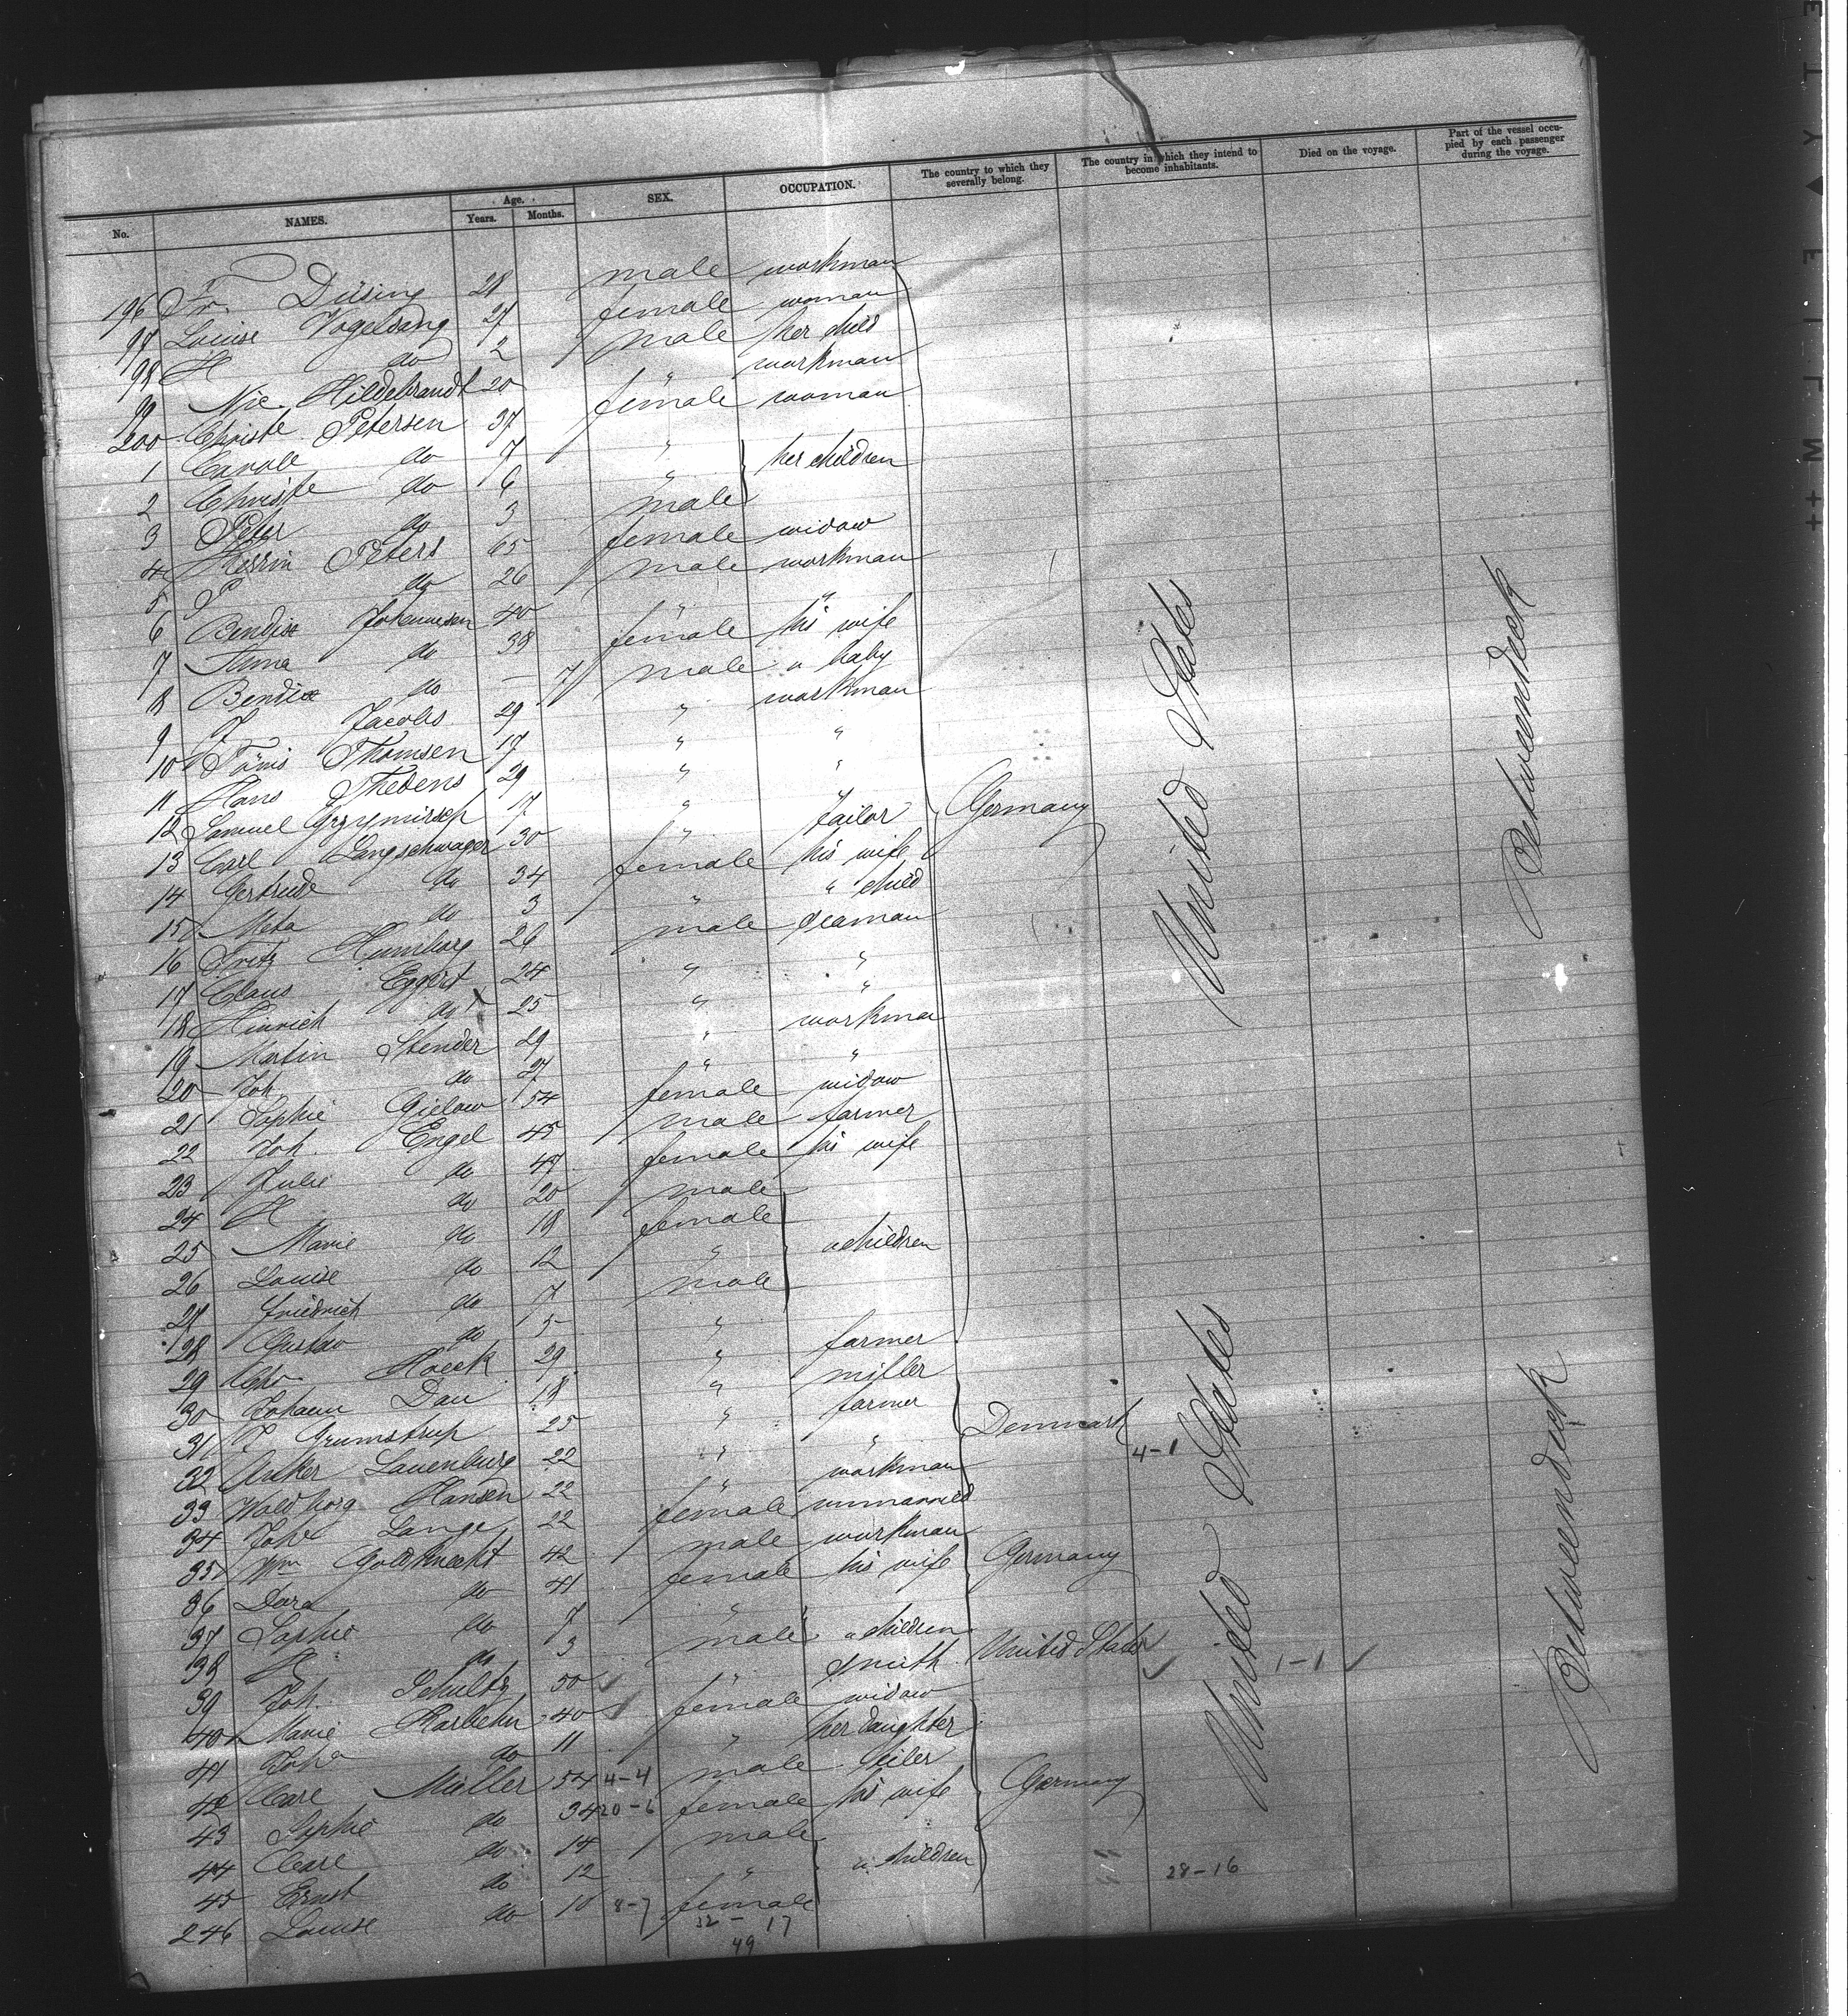 No. NAMES. Age. Years. Months. SEX. OCCUPATION. The country to which they severally belong. The country in which they intend to become inhabitants. Died on the voyage. Part of the vessel occupied by each passenger during the voyage.
196 Fr. Düsing 28 male workman
97 Louise Vogelsang 27 female woman
98 H do 2 male her child
99 Nic. Hildebrandt 20 " workman
200 Christe Petersen 37 female woman
1 do 7 " her children
2 Christe do 6 "
3 Peter do 3 male
4 Peters 65 female widow
5 P do 26 male workman
6 Bendix Johannsen 40 " "
7 Anna do 38 female his wife
8 Bendix do – 7 male a baby
9 J Jacobs 29 " workman
10 Tönis Thomsen 17 " "
11 Hans Thedens 29 " "
12 Samuel 17 " "
13 Carl Langschwager 30 " tailor Germany
14 Gertrude do 34 female his wife
15 Meta do 3 " " child
16 Fritz Humburg 26 male seaman
17 Claus Eggert 24 " "
18 Hinrich do 25 " "
19 Martin Stender 29 " workman
20 Joh. do 27 " "
21 Sophie Gielow 54 female widow
22 Joh. Engel 45 male farmer
23 Julie do 47 female his wife
24 H do 20 male
25 Marie do 18 female
26 Louise do 12 " " children
27 Friedrich do 7 male
28 Gustav do 5 "
29 Chr. Hoeck 29 " farmer
30 Johann Dau 18 " miller
31 P Grumstrup 25 " farmer Denmark
32 Anker Lauenburg 22 " " 4-1
33 Waldborg Hansen 22 " workman
34 Joh Lange 22 female unmarried
35 Wm Goldknecht 42 male workman
36 Dora do 41 female his wife Germany
37 Sophie do 7 "
38 H do 3 male " children
39 Joh. Schultz 50 " smith United States 1-1
40 Marie Karbehn 40 female widow
41 Joh do 11 " her daughter
42 Carl Müller 54 4-4 male
43 Sophie do 34 20-6 female his wife Germany
44 Carl do 14 male
45 Ernst do 12 " " children 28-16
246 Louise do 10 8-7 female
32-17
49
United States
Betweendeck
United States
Betweendeck